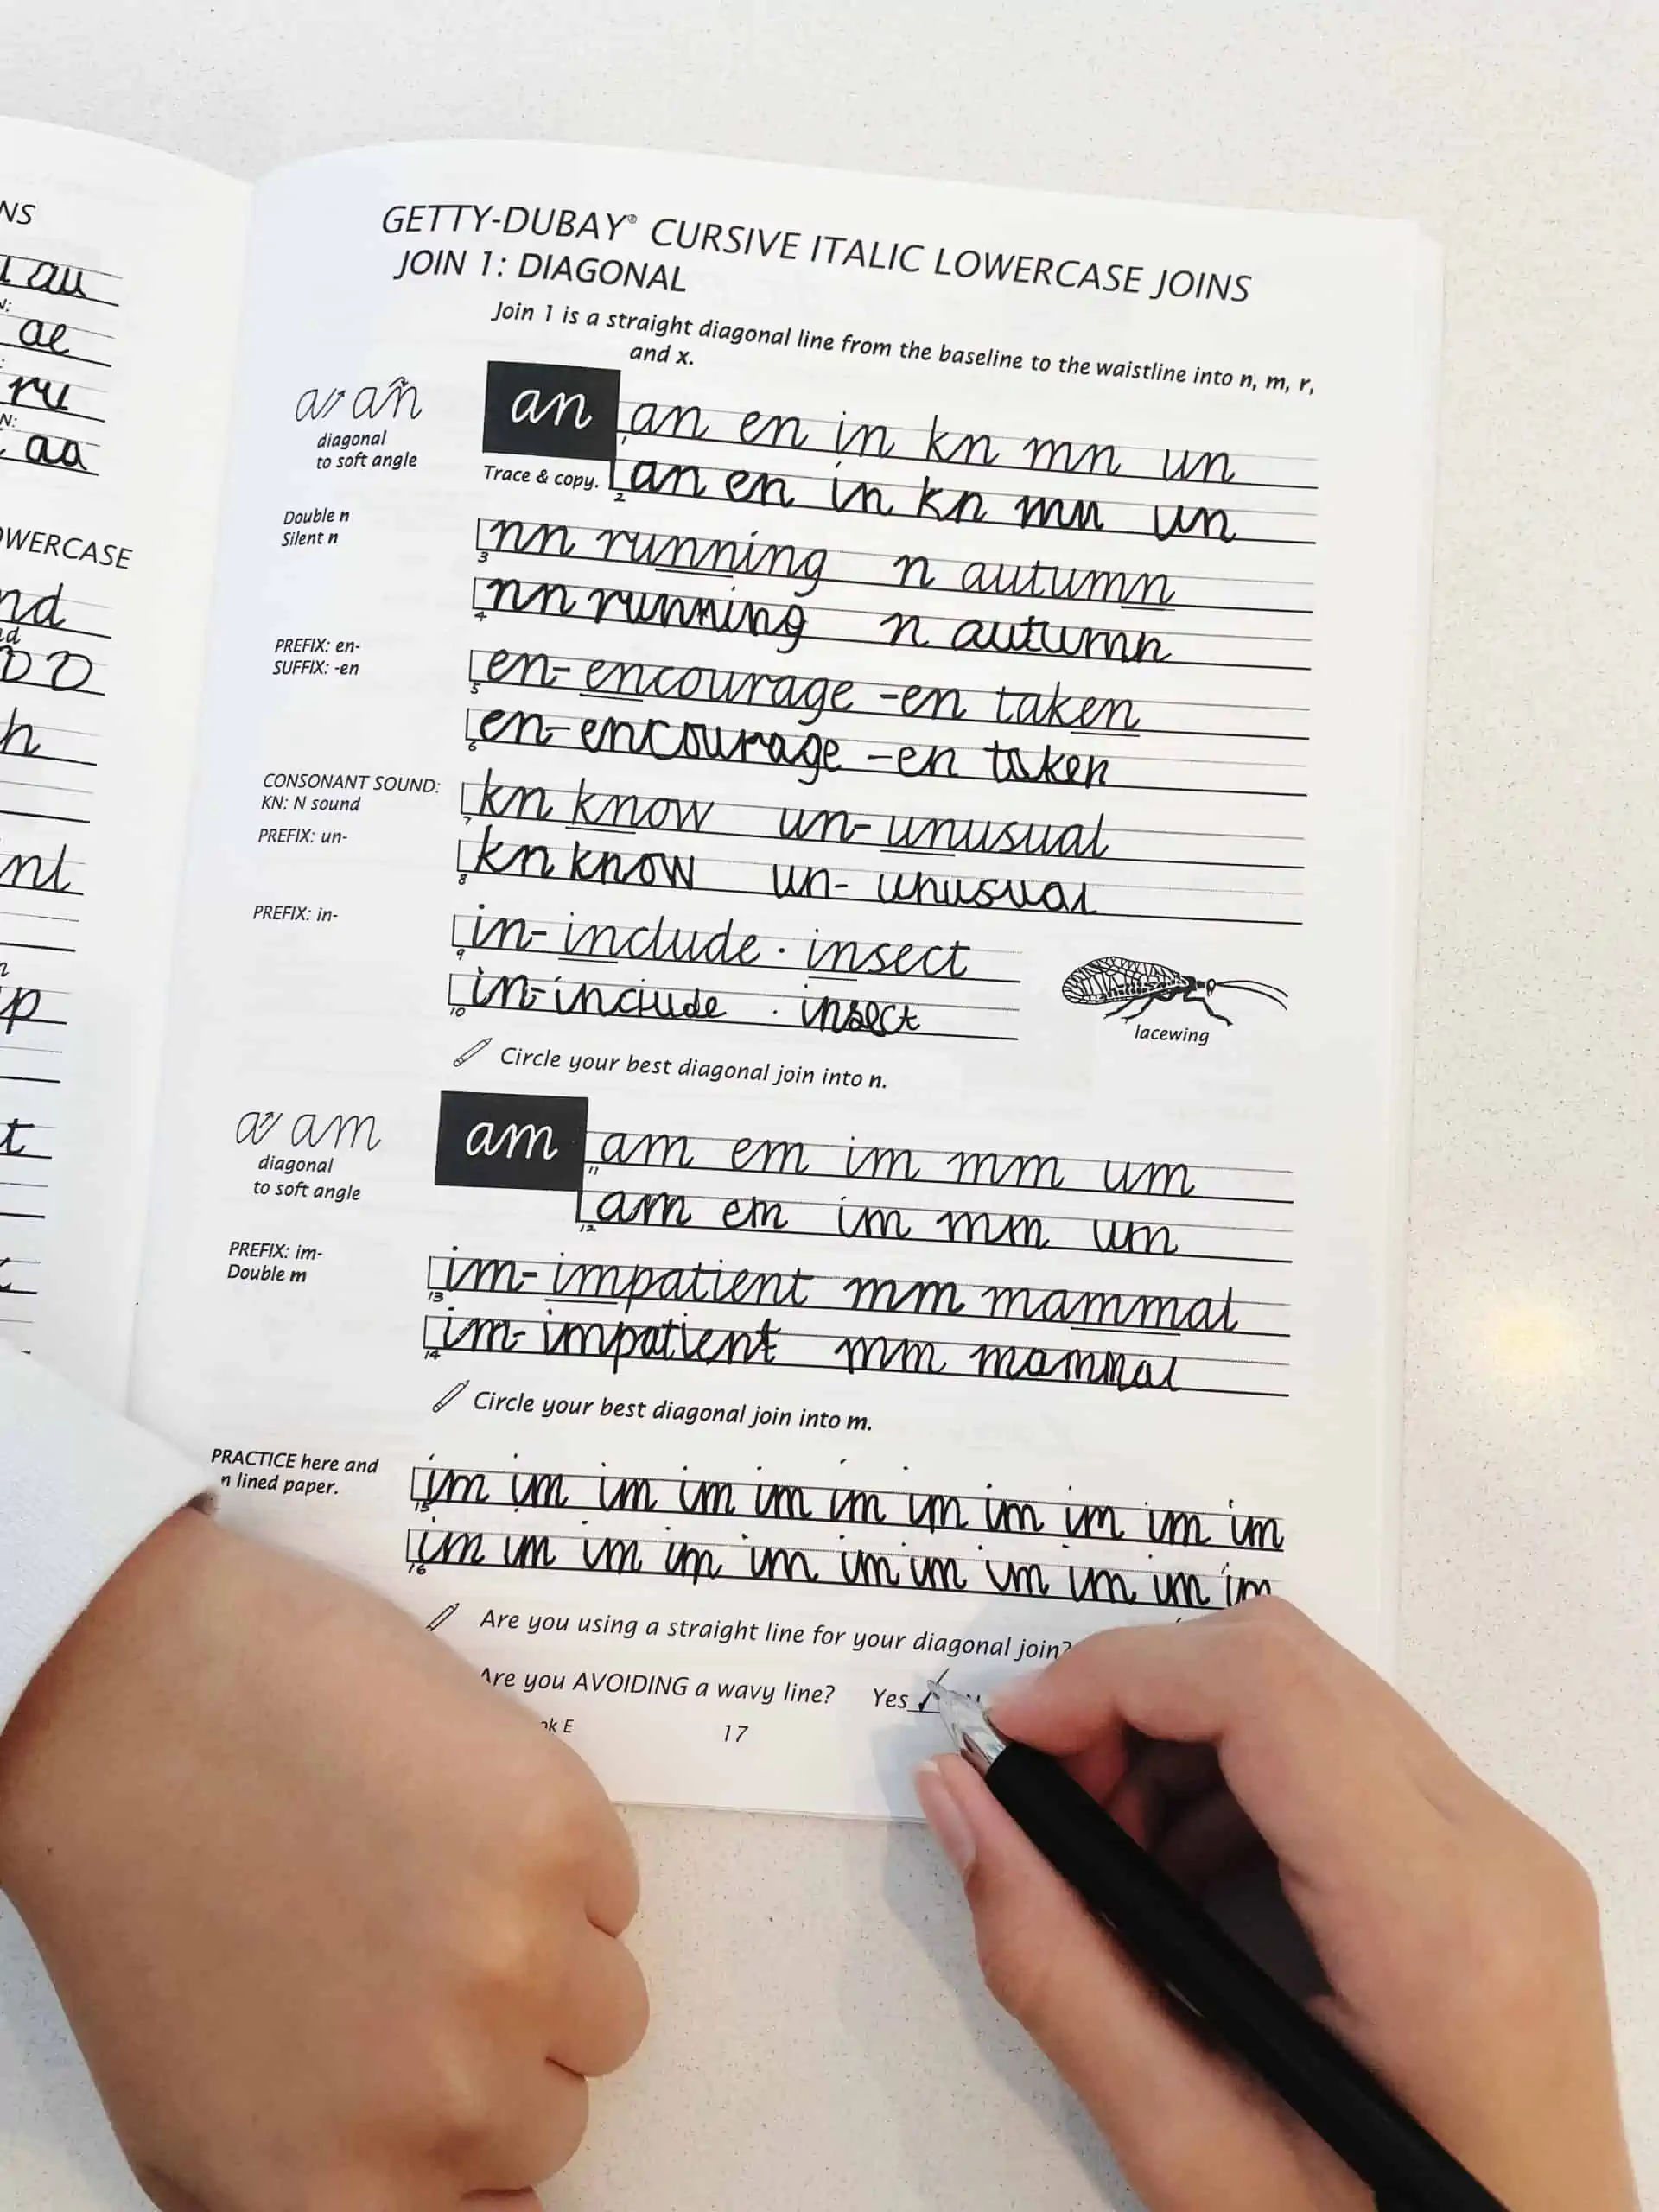 NS
au
ae
ru
aa
OWERCASE
nd
h
GETTY-DUBAY® CURSIVE ITALIC LOWERCASE JOINS
JOIN 1: DIAGONAL
Join 1 is a straight diagonal line from the baseline to the waistline into n, m, r,
and x.
an
diagonal
to soft angle
an an en in kn mn un
Trace & copy.
2 an en in kn mn un
Double n
Silent n
3 nn running n autumn
4 nn running n autumn
PREFIX: en-
SUFFIX: -en
5 en- encourage -en taken
6 en- encourage -en taken
CONSONANT SOUND:
KN: N sound
7 kn know un- unusual
PREFIX: un-
8 kn know un- unusual
PREFIX: in-
9 in- include · insect
10 in- include · insect
lacewing
Circle your best diagonal join into n.
am
diagonal
to soft angle
am
11 am em im mm um
12 am em im mm um
PREFIX: im-
Double m
13 im- impatient mm mammal
14 im- impatient mm mammal
Circle your best diagonal join into m.
PRACTICE here and
n lined paper.
15 im im im im im im im im im im im
16 im im im im im im im im im im im
Are you using a straight line for your diagonal join?
Are you AVOIDING a wavy line? Yes ✓
ok E
17